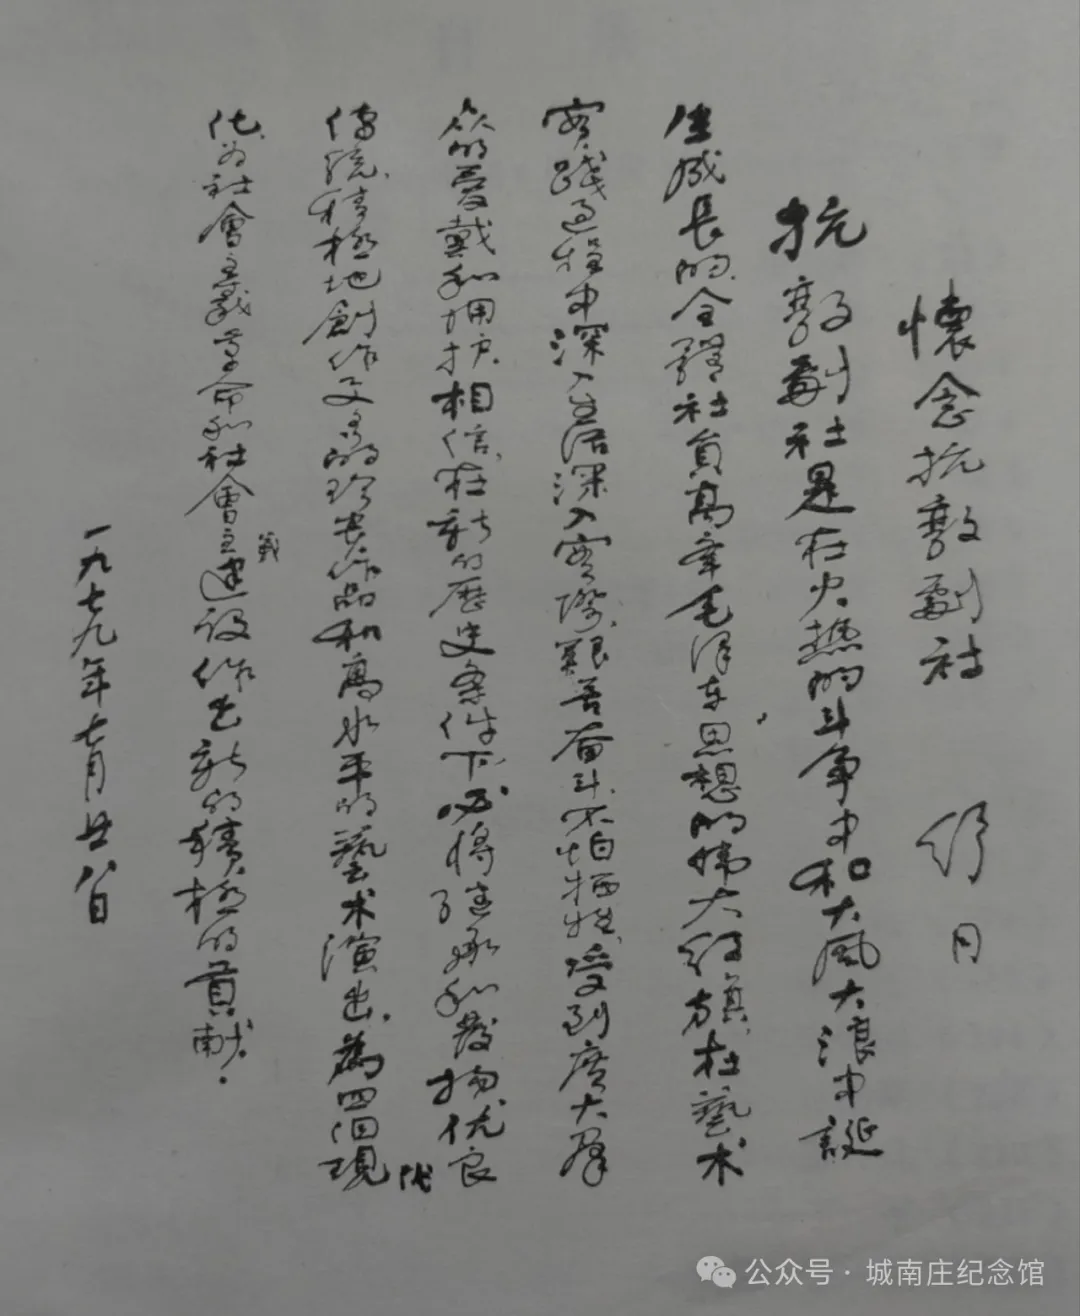 懷念抗敵劇社
抗敵劇社是在火热的斗争中和大風大浪中誕
生成長的,全體社員高举毛泽东思想的伟大红旗,在藝术
實踐过程中深入生活深入實際,艱苦奋斗,不怕牺牲,受到廣大群
众的爱戴和拥护,相信在新的歷史条件下,必將继承和發揚优良
传统,積極地創作多的作品和高水平的藝术演出,為四個現代
化,为社會主義革命和社會主義建设作出新的積極的貢献.
一九七九年七月廿八日
公众号·城南庄纪念馆